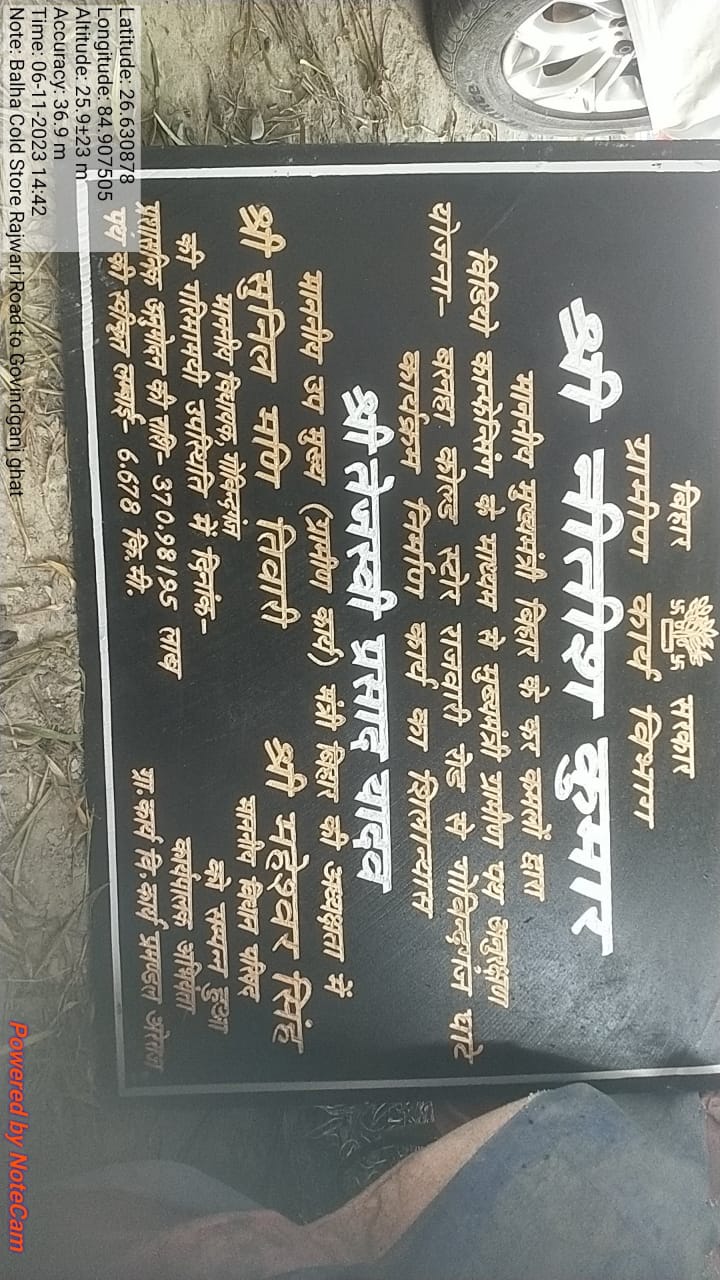 बिहार सरकार
ग्रामीण कार्य विभाग
श्री नीतीश कुमार
माननीय मुख्यमंत्री बिहार के कर कमलों द्वारा
विडियो कान्फ्रेसिंग के माध्यम से मुख्यमंत्री ग्रामीण पथ अनुरक्षण
योजना- बलहा कोल्ड स्टोर राजवारी रोड से गोविन्दगंज घाट
कार्यक्रम निर्माण कार्य का शिलान्यास
श्री तेजस्वी प्रसाद यादव
माननीय उप मुख्य (ग्रामीण कार्य) मंत्री बिहार की अध्यक्षता में
श्री सुनिल मणि तिवारी
माननीय विधायक, गोविन्दगंज
श्री महेश्वर सिंह
माननीय विधान परिषद
की गरिमामयी उपस्थिति में दिनांक-
को सम्पन्न हुआ
प्रशासनिक अनुमोदन की राशि- 370.98195 लाख
कार्यपालक अभियंता
पथ की स्वीकृत लम्बाई- 6.678 कि.मी.
ग्रा.कार्य वि.कार्य प्रमण्डल अरेराज
Latitude: 26.630878
Longitude: 84.907505
Altitude: 25.9±23 m
Accuracy: 36.9 m
Time: 06-11-2023 14:42
Note: Balha Cold Store Rajwari Road to Govindganj ghat
Powered by NoteCam